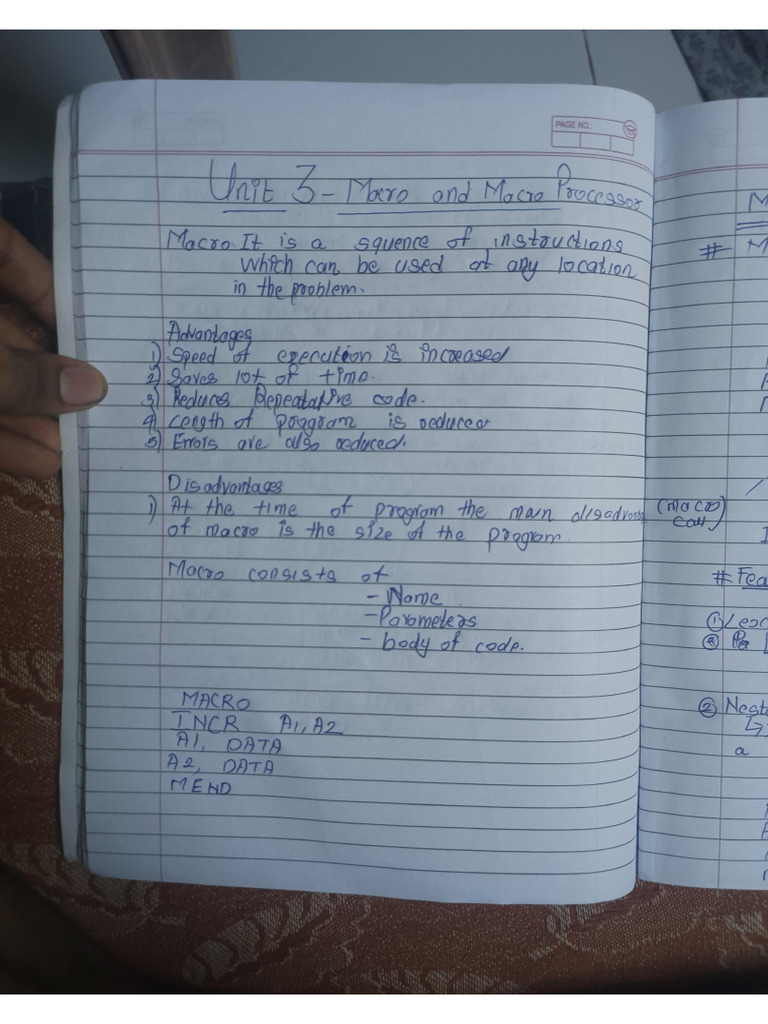 PAGE NO.:
Unit 3 - Macro and Macro Processor
Macro. It is a squence of instructions
which can be used at any location
in the problem.
Advantages
1) Speed of execution is increased
2) Saves lot of time.
3) Reduces Repeatative code.
4) Length of program is reduced
5) Errors are also reduced.
Disadvantages
1) At the time of program the main
of macro is the size of the program
Macro consists of
- Name
- Parameters
- body of code.
MACRO
INCR A1, A2
A1, DATA
A2, DATA
MEND
#
(macro)
call
#
①
②